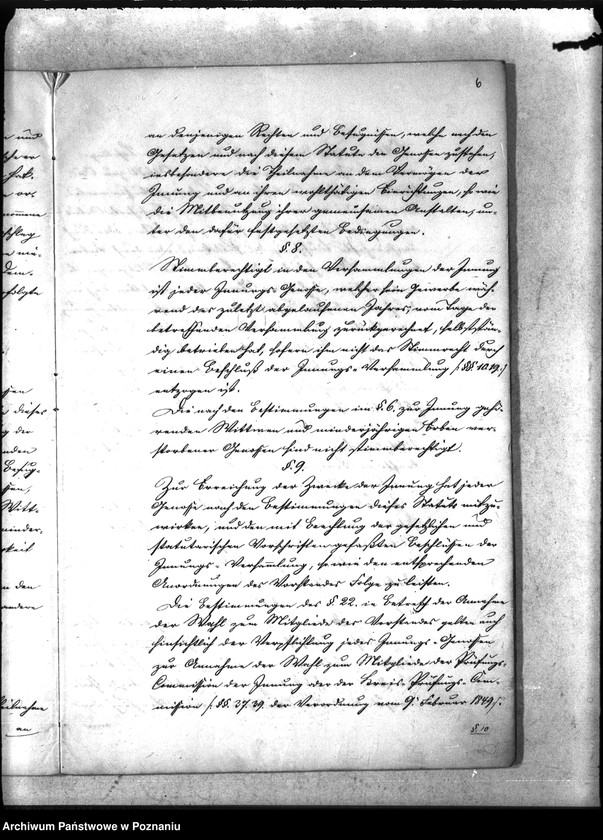 6
an denjenigen Rechten und Befugnissen, welche nach den
Gesetzen und nach diesem Statute den Genossen zustehen,
insbesondere die Teilnahme an dem Vermögen der
Innung und an ihren wohlthätigen Einrichtungen, so wie
die Mitbenutzung ihrer gemeinsamen Anstalten, un-
ter den dafür festgesetzten Bedingungen.
§ 8.
Stimmberechtigt in den Versammlungen der Innung
ist jeder Innungs Genosse, welcher sein Gewerbe wäh-
rend des zuletzt abgelaufenen Jahres, vom Tage der
betreffenden Versammlung zurückgerechnet, selbststän-
dig betrieben hat, sofern ihm nicht das Stimmrecht durch
einen Beschluß der Innungs-Versammlung /:§§ 10.19:/
entzogen ist.
Die nach den Bestimmungen im §. 6. zur Innung gehö-
renden Wittwen und minderjährigen Erben ver-
storbener Genossen sind nicht stimmberechtigt.
§ 9.
Zur Erreichung der Zwecke der Innung hat jeder
Genosse nach den Bestimmungen dieses Statuts mitzu-
wirken, und den mit Beachtung der gesetzlichen und
statutarischen Vorschriften gefaßten Beschlüssen der
Innungs-Versammlung, so wie den entsprechenden
Anordnungen des Vorstandes Folge zu leisten.
Die Bestimmungen des §. 22. in Betreff der Annahme
der Wahl zum Mitgliede des Vorstandes gelten auch
hinsichtlich der Verpflichtung jedes Innungs-Genossen
zur Annahme der Wahl zum Mitgliede der Prüfungs-
Commission der Innung oder der Kreis-Prüfungs-Com-
mission /:§§. 37.39. der Verordnung vom 9. Februar 1849/:
§. 10
an
Archiwum Państwowe w Poznaniu